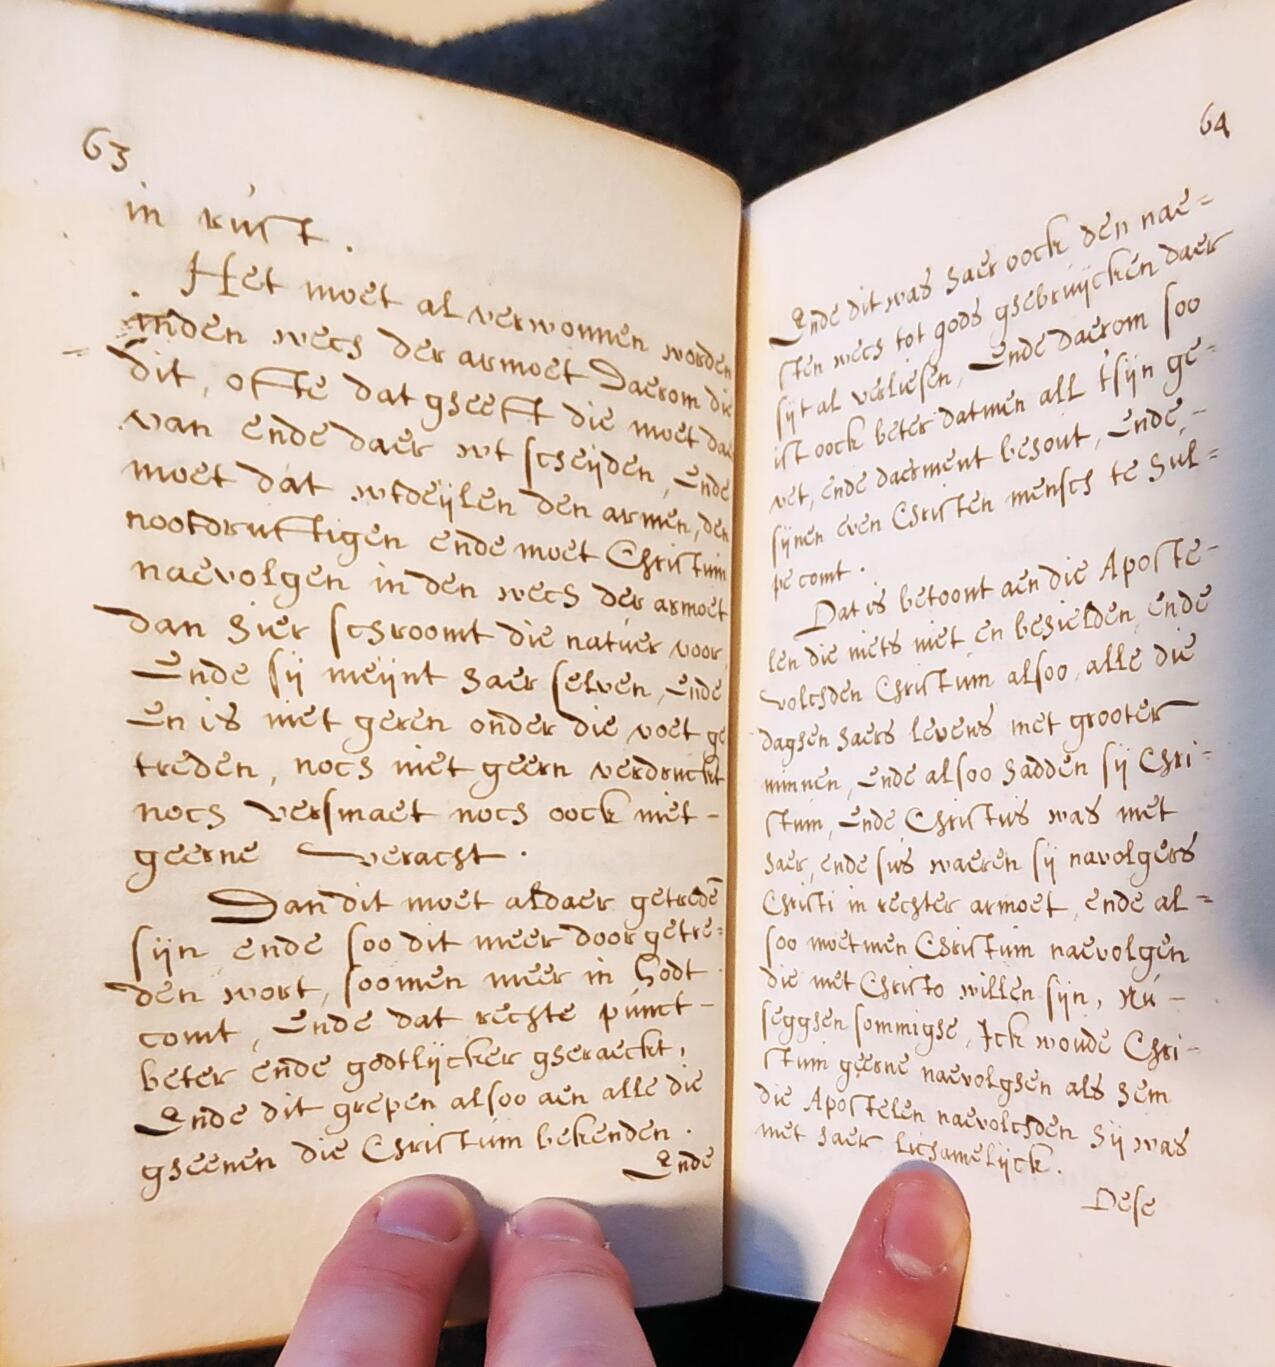 63
in rúst.
Het moet al verwonnen worden
inden wech der armoet Daerom die
dit, ofte dat gheeft die moet daer
van ende daer wt scheijden, Ende
moet dat wtdeijlen den armen, den
nootdruftigen ende moet Christum
naevolgen in den wech der armoet
dan hier schroomt die natúer voor,
Ende sij meijnt haer selven, Ende
En is niet geren onder die voet ge
treden, noch niet geern verdruckt
noch versmaet noch oock niet -
geerne veracht.
Dan dit moet aldaer getredē
sijn ende soo dit meer doorgetre=
den wort, soomen meer in Godt
comt, Ende dat rechte púnct -
beter ende godtlijcker gheraeckt,
Ende dit grepen alsoo aen alle die
gheenen die Christúm bekenden.
Ende
64
Ende dit was haer oock den nae=
sten wech tot gods ghebruijcken daer
sijt al verliesen, Ende daerom soo
ist oock beter datmen all t'sijn ge=
vet, ende daerment behout, Ende, -
sijnen even Christen mensch te hul=
pe comt.
Dat is betoont aen die Aposte-
len die niets niet en behielden, ende
volchden Christum alsoo, alle die
daghen haers levens met grooter
minnen, Ende alsoo hadden sij Chri=
stum, Ende Christus was met
haer, ende sus waeren sij navolgers
Christi in rechter armoet, ende al=
soo moetmen Christum naevolgen
die met Christo willen sijn, Nú -
segghen sommighe, Ick woude Chri-
stum geerne naevolghen als hem
die Apostelen naevolchden hij was
met haer lichamelijck.
Dese